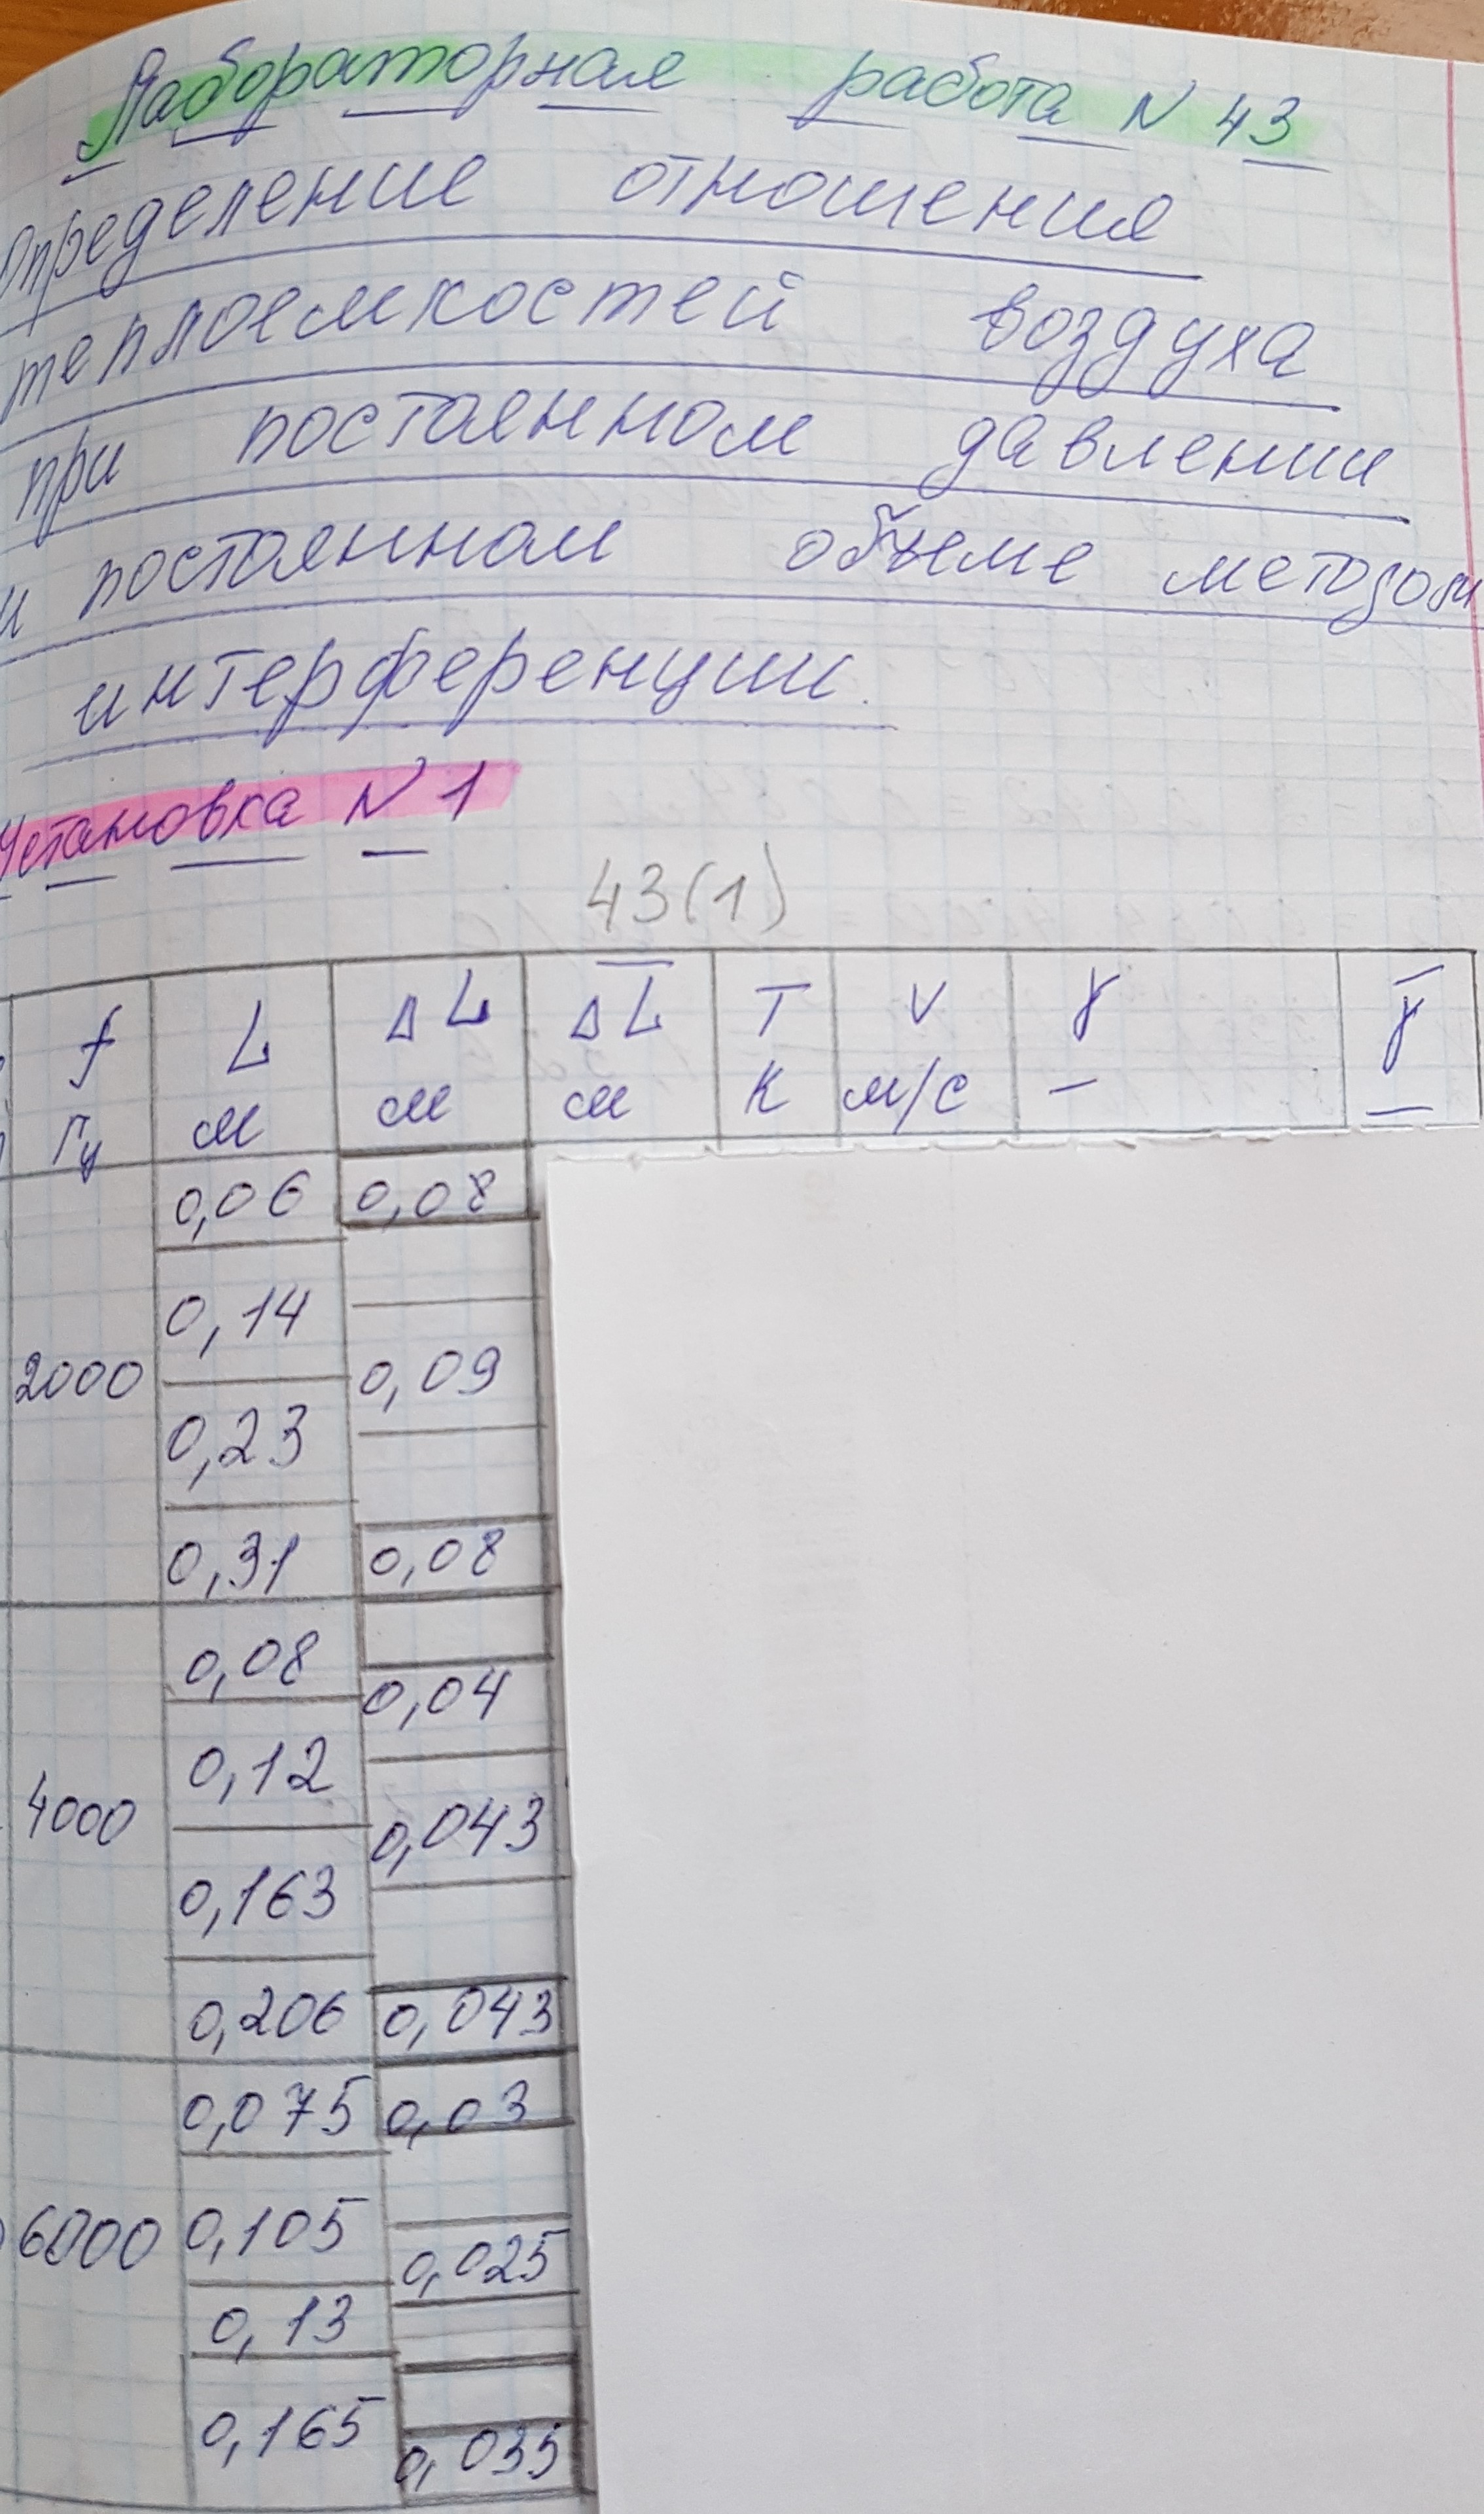 Лабораторная работа N 43
Определение отношения
теплоемкостей воздуха
при постоянном давлении
и постоянном объеме методом
интерференции.
Установка N 1
43(1)
f Гц L м ΔL м Δ̅L̅ м T К V м/с γ – γ̅ –
0,06 0,08
0,14
2000 0,09
0,23
0,31 0,08
0,08
0,04
0,12
4000 0,043
0,163
0,206 0,043
0,075 0,03
6000 0,105
0,025
0,13
0,165
0,035